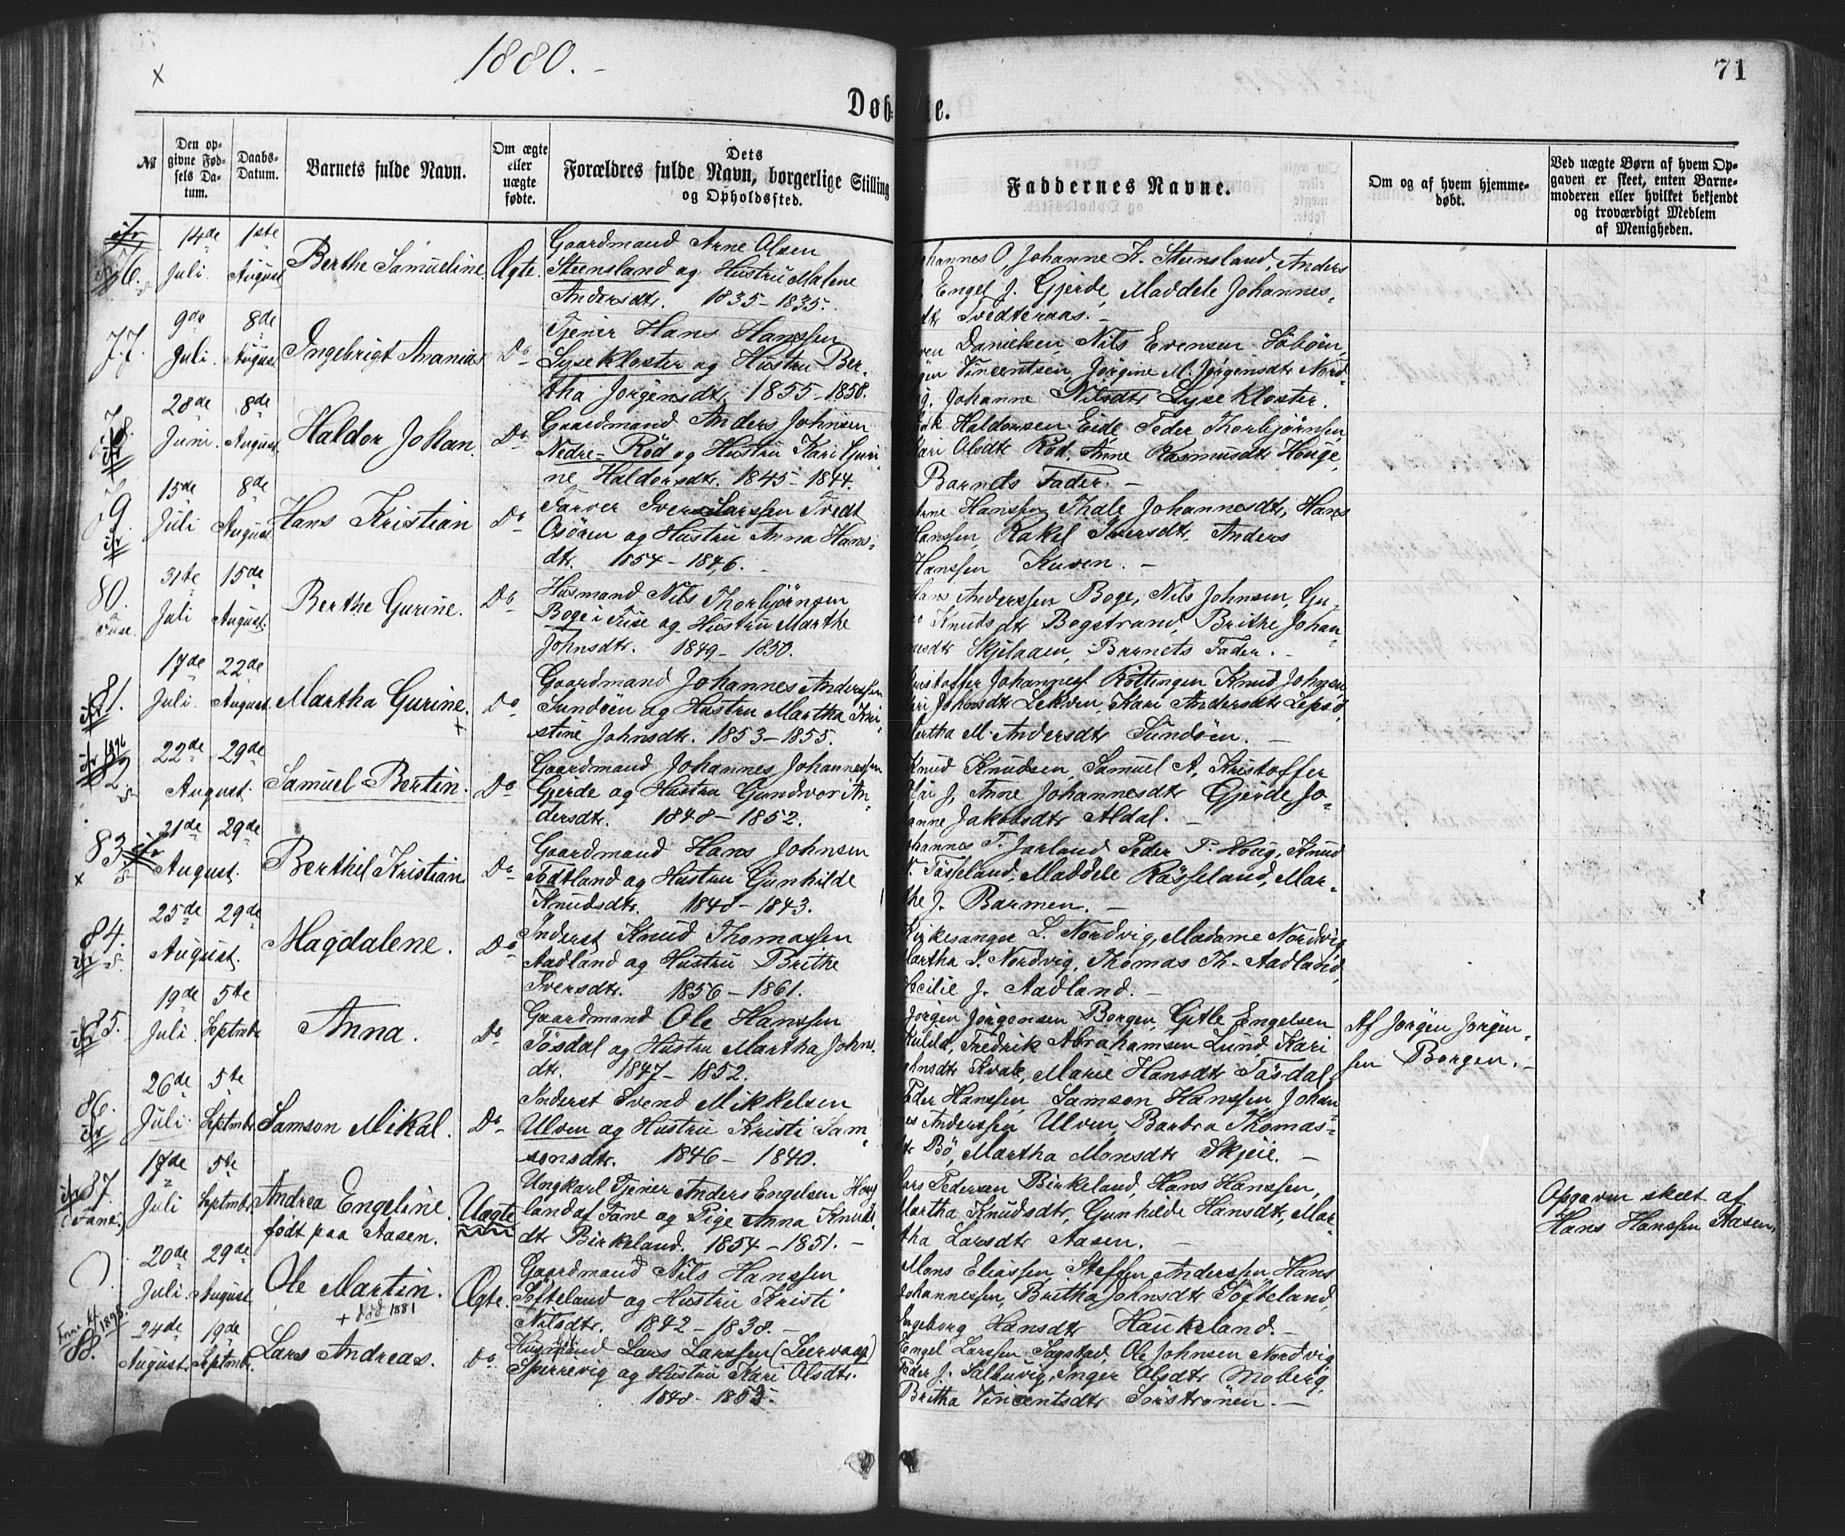 1880.
71
Døbte.
№
Den opgivne Fødsels Datum.
Daabs-Datum.
Barnets fulde Navn.
Om ægte eller uægte fødte.
Dets Forældres fulde Navn, borgerlige Stilling og Opholdssted.
Faddernes Navne.
Om og af hvem hjemmedøbt.
Ved uægte Børn af hvem Opgaven er skeet, enten Barnemoderen eller hvilket bekjendt og troværdigt Medlem af Menigheden.
76. 14de Juli. 1ste August Berthe Samueline. Ægte.
Gaardmand Arne Olsen
Steensland og Hustru Malene
Andersdtr. 1835-1835.
Johannes O, Johanne K. Steinsland, Anders
Engel J. Gjerde, Maddele Johannes-
dtr Tvedteraas.
77. 9de Juli 8de August Ingebrigt Ananias Do
Tjener Hans Hanssen
Lysekloster og Hustru Ber-
tha Jørgensdtr. 1855-1858.
Danielsen, Nils Evensen Søbøen,
Vincentsen, Jørgine M. Jørgensdtr Nord-
Johanne Nilsdtr Lysekloster.
78. 28de Juni. 8de August Haldor Johan. Do
Gaardmand Anders Johnsen
Nedre-Röd og Hustru Kari Guri-
ne Haldorsdtr. 1845-1844.
Haldorsen Eide Peder Thorbjørnsen
Kari Olsdtr Röd, Anne Rasmusdtr Houge,
Barnets Fader.
79 15de Juli 8de August Hans Kristian Do
Farver Iver Larssen Tvedt
Osören og Hustru Anna Hans-
dtr. 1854-1846.
Arne Hanssen Thale Johannesdtr, Hans
Hanssen, Rakel Iversdtr. Anders
Hanssen Kuven.
80. Fuse. 31te Juli 15de August. Berthe Gurine. Do
Husmand Nils Thorbjörnsen
Boge i Fuse og Hustru Marthe
Johnsdtr. 1849-1850.
Hans Anderssen Boge, Nils Johnsen, Gu-
Knudsdtr Bogstrand, Brithe Johan-
nesdtr Skjelaaen, Barnets Fader.
81. 17de Juli. 22de August Martha Gurine. Do
Gaardmand Johannes Anderssen
Sundöen og Hustru Martha Kri-
stine Johnsdtr. 1853-1855.
Kristoffer Johannessen Röttingen Knud Johnsen
Siri Johnsdtr Lekven, Kari Andersdtr Lepsö,
Martha M. Andersdtr Sundöen.
82 22de 29de August. Samuel Bertin. Do
Gaardmand Johannes Johannessen
Gjerde og Hustru Gundvor An-
dersdtr. 1848-1852.
Knud Knudsen, Samuel A, Kristoffer
Olai J, Anne Johannesdtr Gjerde Jo-
anne Jakobsdtr Aldal.
83 21de 29de August. Berthel Kristian Do
Gaardmand Hans Johnsen
Todtland og Hustru Gunhilde
Knudsdtr. 1848-1843.
Johannes T. Jarland Peder P. Houg, Knud
Tösseland, Maddele Rösseland, Mar-
the J. Barmen.
84. 25de 29de August. Magdalene. Do
Inderst Knud Thomassen
Aadland og Hustru Brithe
Iversdtr. 1856-1861.
Kirkesanger L. Nordvig, Madame Nordvig
Martha L. Nordvig, Thomas Th. Aadland,
Cecilie J. Aadland.
85. 19de Juli 5te Septembr Anna. Do
Gaardmand Ole Hanssen
Tösdal og Hustru Martha Johns-
dtr. 1847-1852.
Jörgen Jörgensen Borgen, Gitle Engelsen
Kulild, Fredrik Abrahamsen Lund, Kari
Johnsdtr Kvale, Marie Hansdtr Tösdal,
Af Jörgen Jörgen-
sen Borgen.
86. 26de Juli. 5te Septembr Samson Mikal. Do
Inderst Svend Mikkelsen
Ulven og Hustru Kristi Sam-
sonsdtr. 1846-1840.
Peder Hanssen, Samson Hanssen Johan-
nes Anderssen Ulven, Barbra Thomas-
dtr Bö, Martha Monsdtr Skjeie.
87. 17de Juli 5te Septembr Andrea Engeline. födt paa Aasen. Uægte
Ungkarl Tjener Anders Engelsen Houg-
land af Fane og Pige Anna Knuds-
dtr Birkeland. 1854-1851.
Lars Pedersen Birkeland, Hans Hanssen,
Martha Knudsdtr, Gunhilde Hansdtr, Mar-
tha Larsdtr Aasen.
Opgaven skeet af
Hans Hanssen Aasen.
20de Juli 29de August Ole Martin. + död 1881 Ægte.
Gaardmand Nils Hanssen
Söfteland og Hustru Kristi
Nilsdtr. 1842-1838.
Mons Eliassen, Steffen Anderssen Hans
Johannessen, Britha Johnsdtr Söfteland,
Ingeborg Hansdtr Haukeland.
88. 24de August 19de Septembr. Lars Andreas. Do
Husmand Lars Larssen (Leervaag)
Spirrevig og Hustru Kari Olsdtr.
1848-1853.
Engel Larssen Sagstad, Ole Johnsen Nordvig
Peder J. Salbuvig, Inger Olsdtr Moberg,
Britha Vincentsdtr Sörströnen.